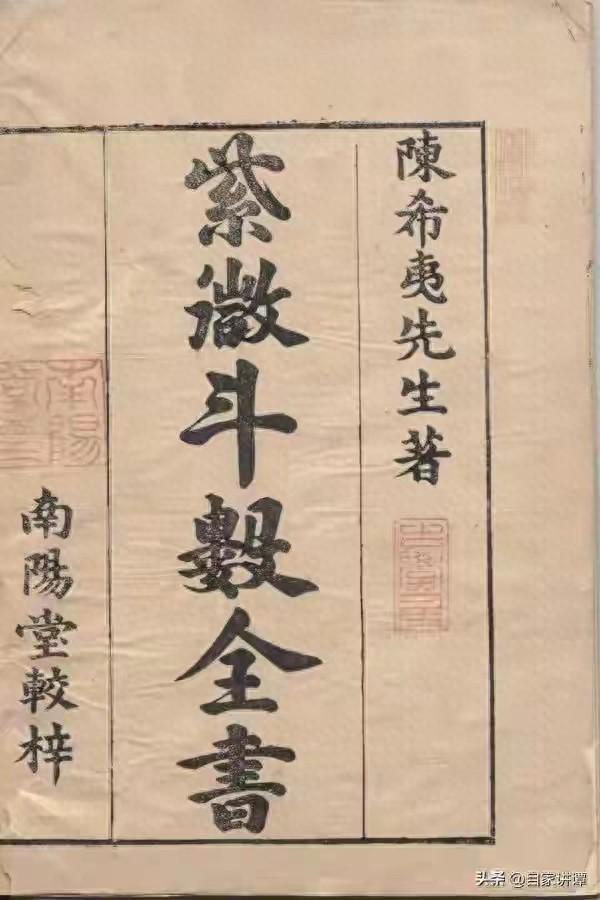 陳希夷先生著
紫微斗數全書
南陽堂較梓
南陽
头条 @自家讲谭